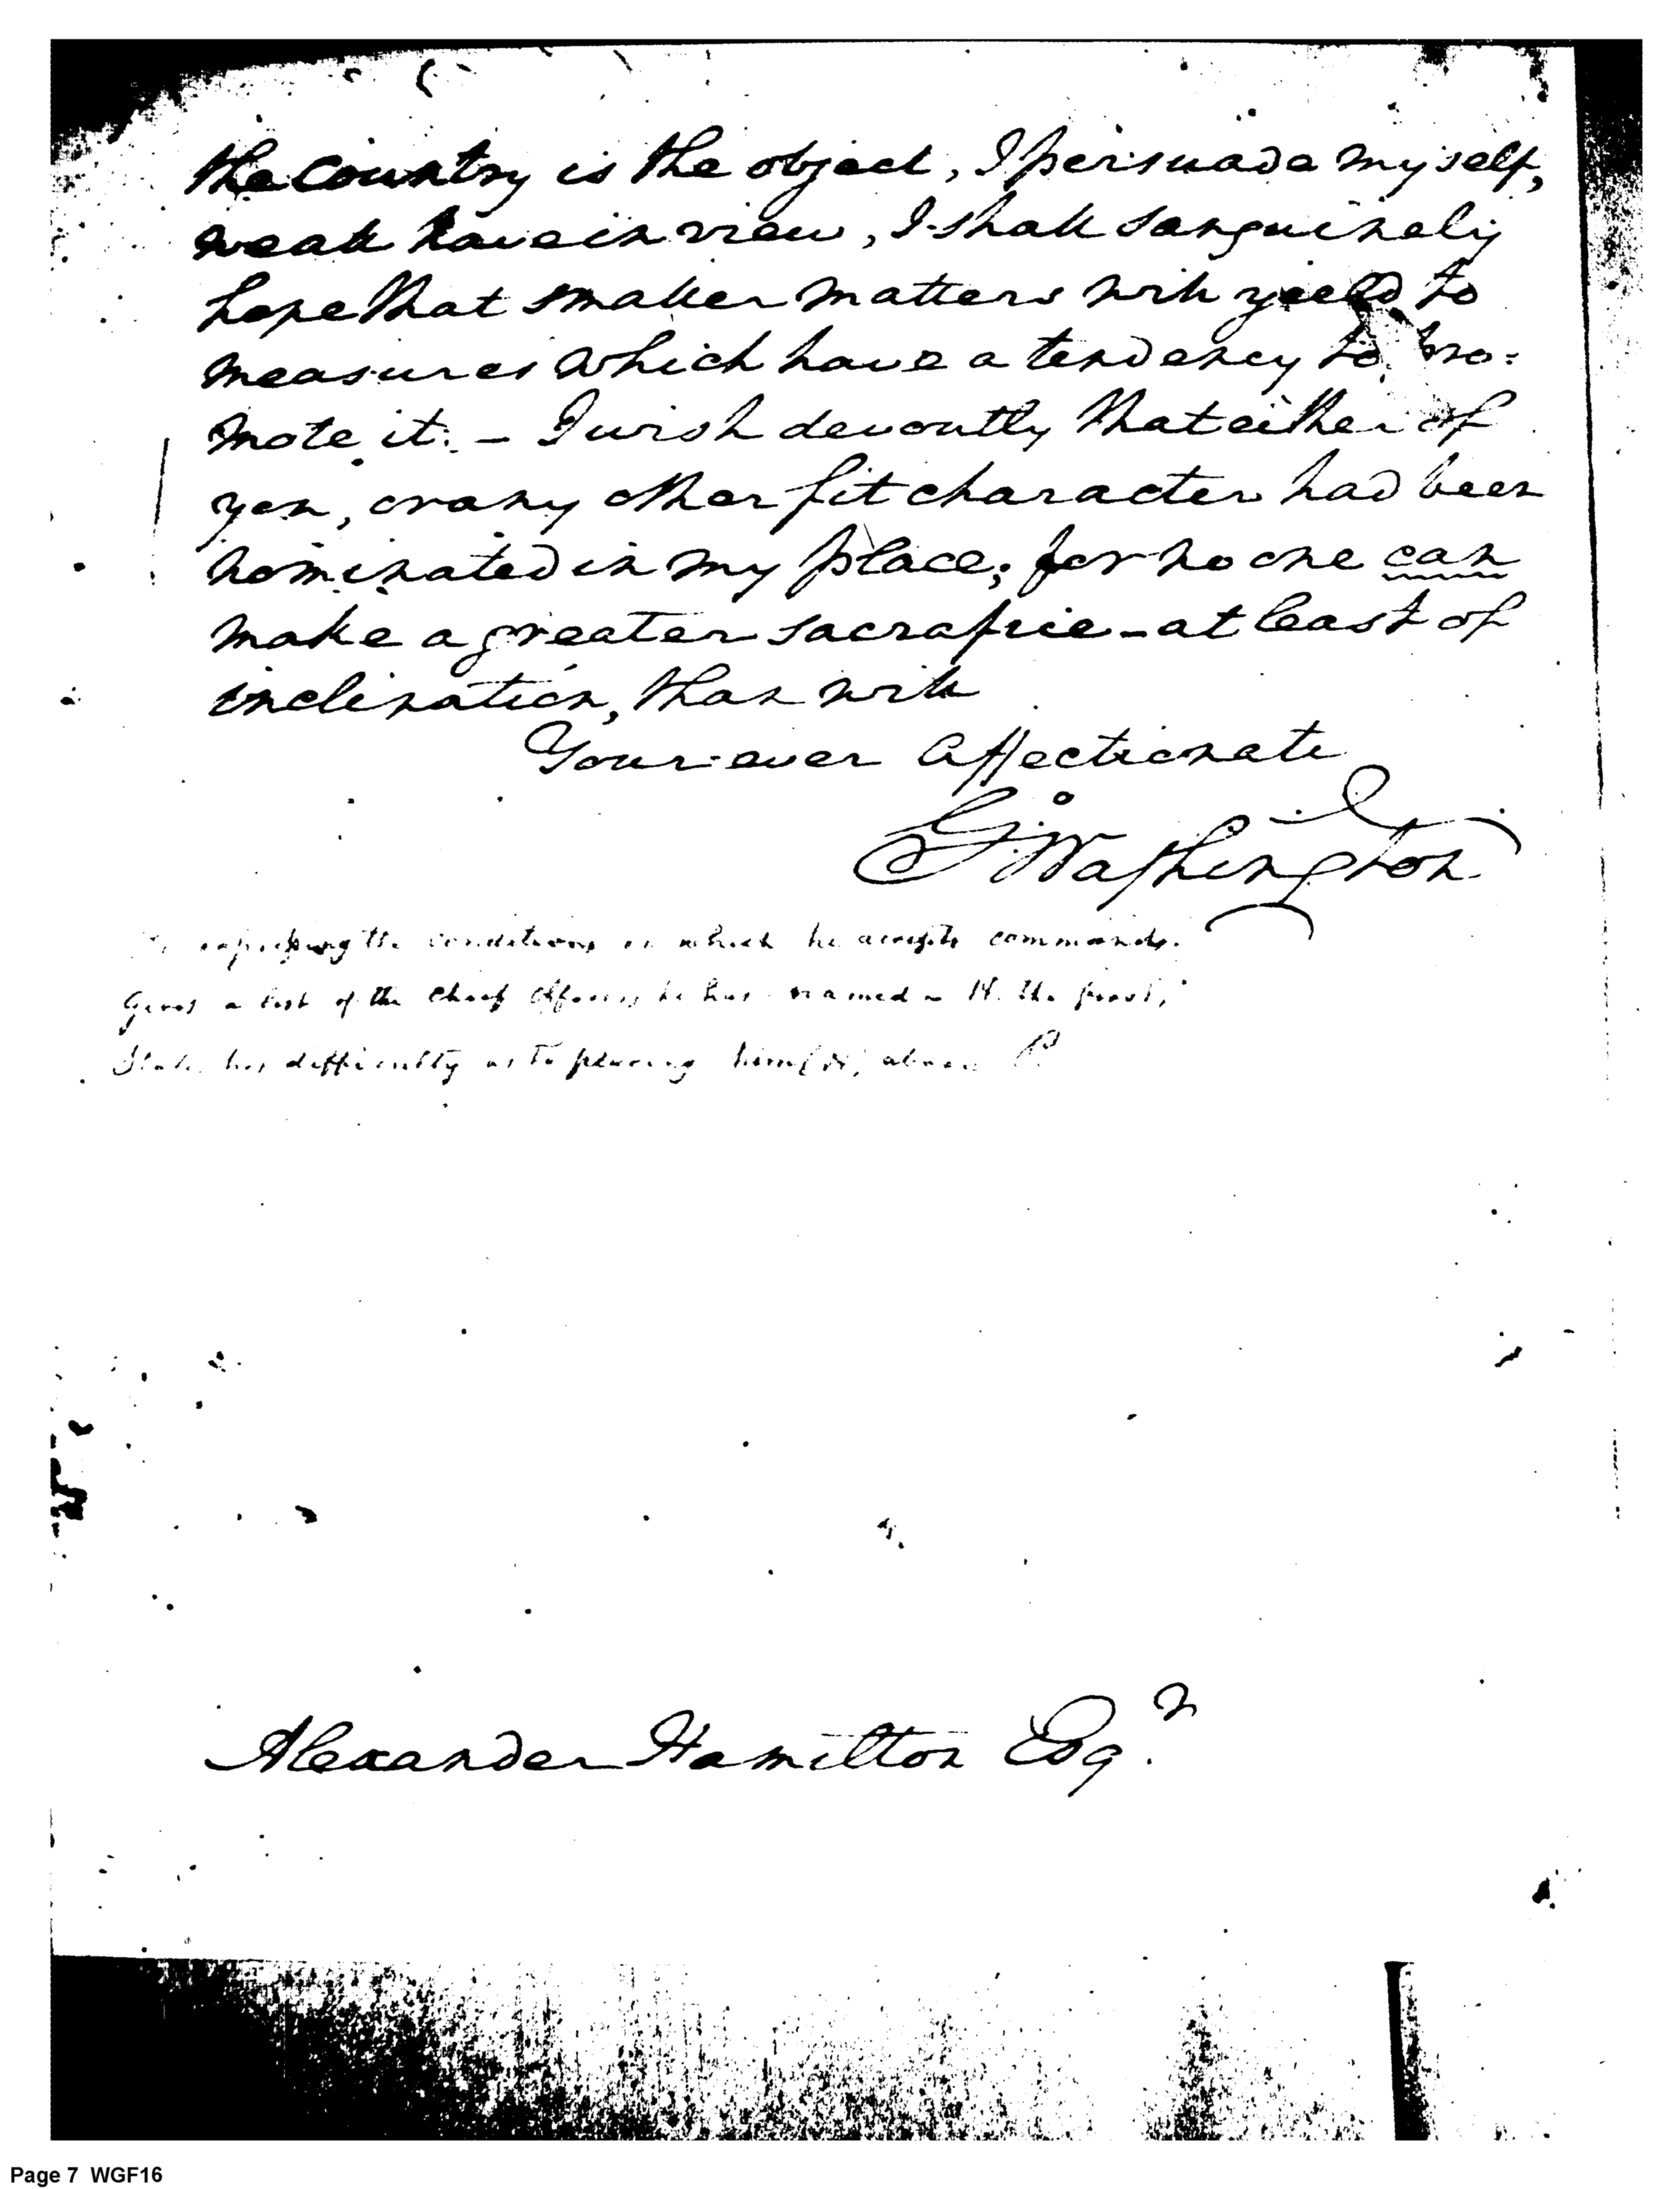 the Country is the object, I persuade myself,
we all have in view, I shall sanguinely
hope that smaller matters will yield to
measures which have a tendency to pro=
mote it. – I wish devoutly that either of
you, or any other fit character had been
nominated in my place; for no one can
make a greater sacrafice – at least of
inclination, than will
Your ever Affectionate
Go: Washington
expressing the conditions on which he accepts command.
Gives a list of the Chief Officers he has named – H. the first,
State his difficulty as to placing him (H) above P.
Alexander Hamilton Esqr.
Page 7 WGF16